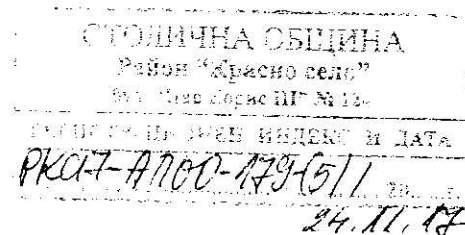 СТОЛИЧНА ОБЩИНА
Район "Красно село"
бул. "Цар Борис III" № 124
РЕГИСТРАЦИОНЕН ИНДЕКС И ДАТА
РКС17-АП00-179-(5)/1 20 г.
24.11.17